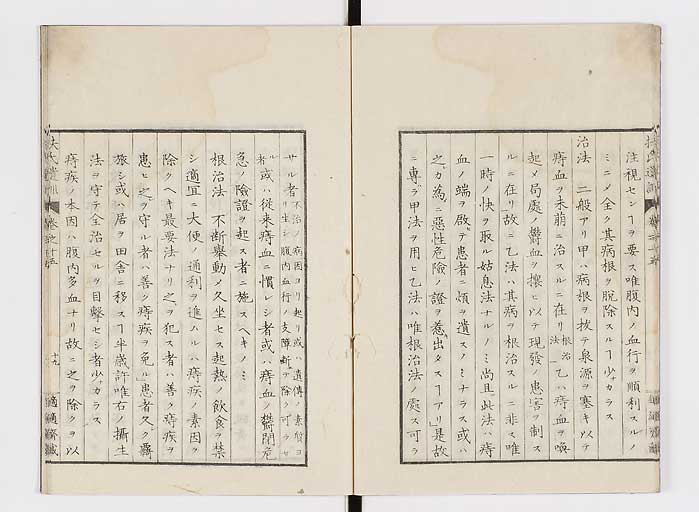 注視センヿヲ要ス唯腹内ノ血行ヲ順利スルノ
ミニメ全ク其病根ヲ脱除スルヿ少カラス
治法 二般アリ甲ハ病根ヲ拔テ泉源ヲ塞キ以テ
痔血ヲ未萠ニ治スルニ在リ根治法乙ハ痔血ヲ喚
起メ局處ノ鬱血ヲ攘ヒ以テ現發ノ患害ヲ制ス
ルニ在リ故ニ乙法ハ其病ヲ根治スルニ非ス唯
一時ノ快ヲ取ル姑息法ナルノミ尚且此法ハ痔
血ノ端ヲ啟テ患者ニ煩ヲ遺スノミナラス或ハ
之カ為ニ惡性危險ノ證ヲ蠢出タスヿアリ是故
ニ專ラ甲法ヲ用ヒ乙法ハ唯根治法ノ處ス可ラ
サル者不治ノ病因ヨリ起リ或ハ遺傳ノ素質ヨリ生シ腹内血行ノ支障斷テ除ク可ラサル者
或ハ従来痔血ニ慣レシ者或ハ痔血ノ欝閉危
急ノ險證ヲ起ス者ニ施スヘキノミ
根治法 不斷舉動メ久坐セス起熱ノ飲食ヲ禁
シ適宜ニ大便ノ通利ヲ進ハルハ痔疾ノ素因ヲ
除クヘキ最要法ナリ之ヲ犯ス者ハ善ク痔疾ヲ
患ヒ之ヲ守ル者ハ善ク痔疾ヲ免ル患者久ク羇
旅シ或ハ居ヲ田舎ニ移スヿ半歳許唯右ノ攝生
法ヲ守テ全治セルヲ目擊セシ者少カラス
痔疾ノ本因ハ腹内多血ナリ故ニ之ヲ除クヲ以
扶氏遺訓
卷之十五
十九
適適齋藏